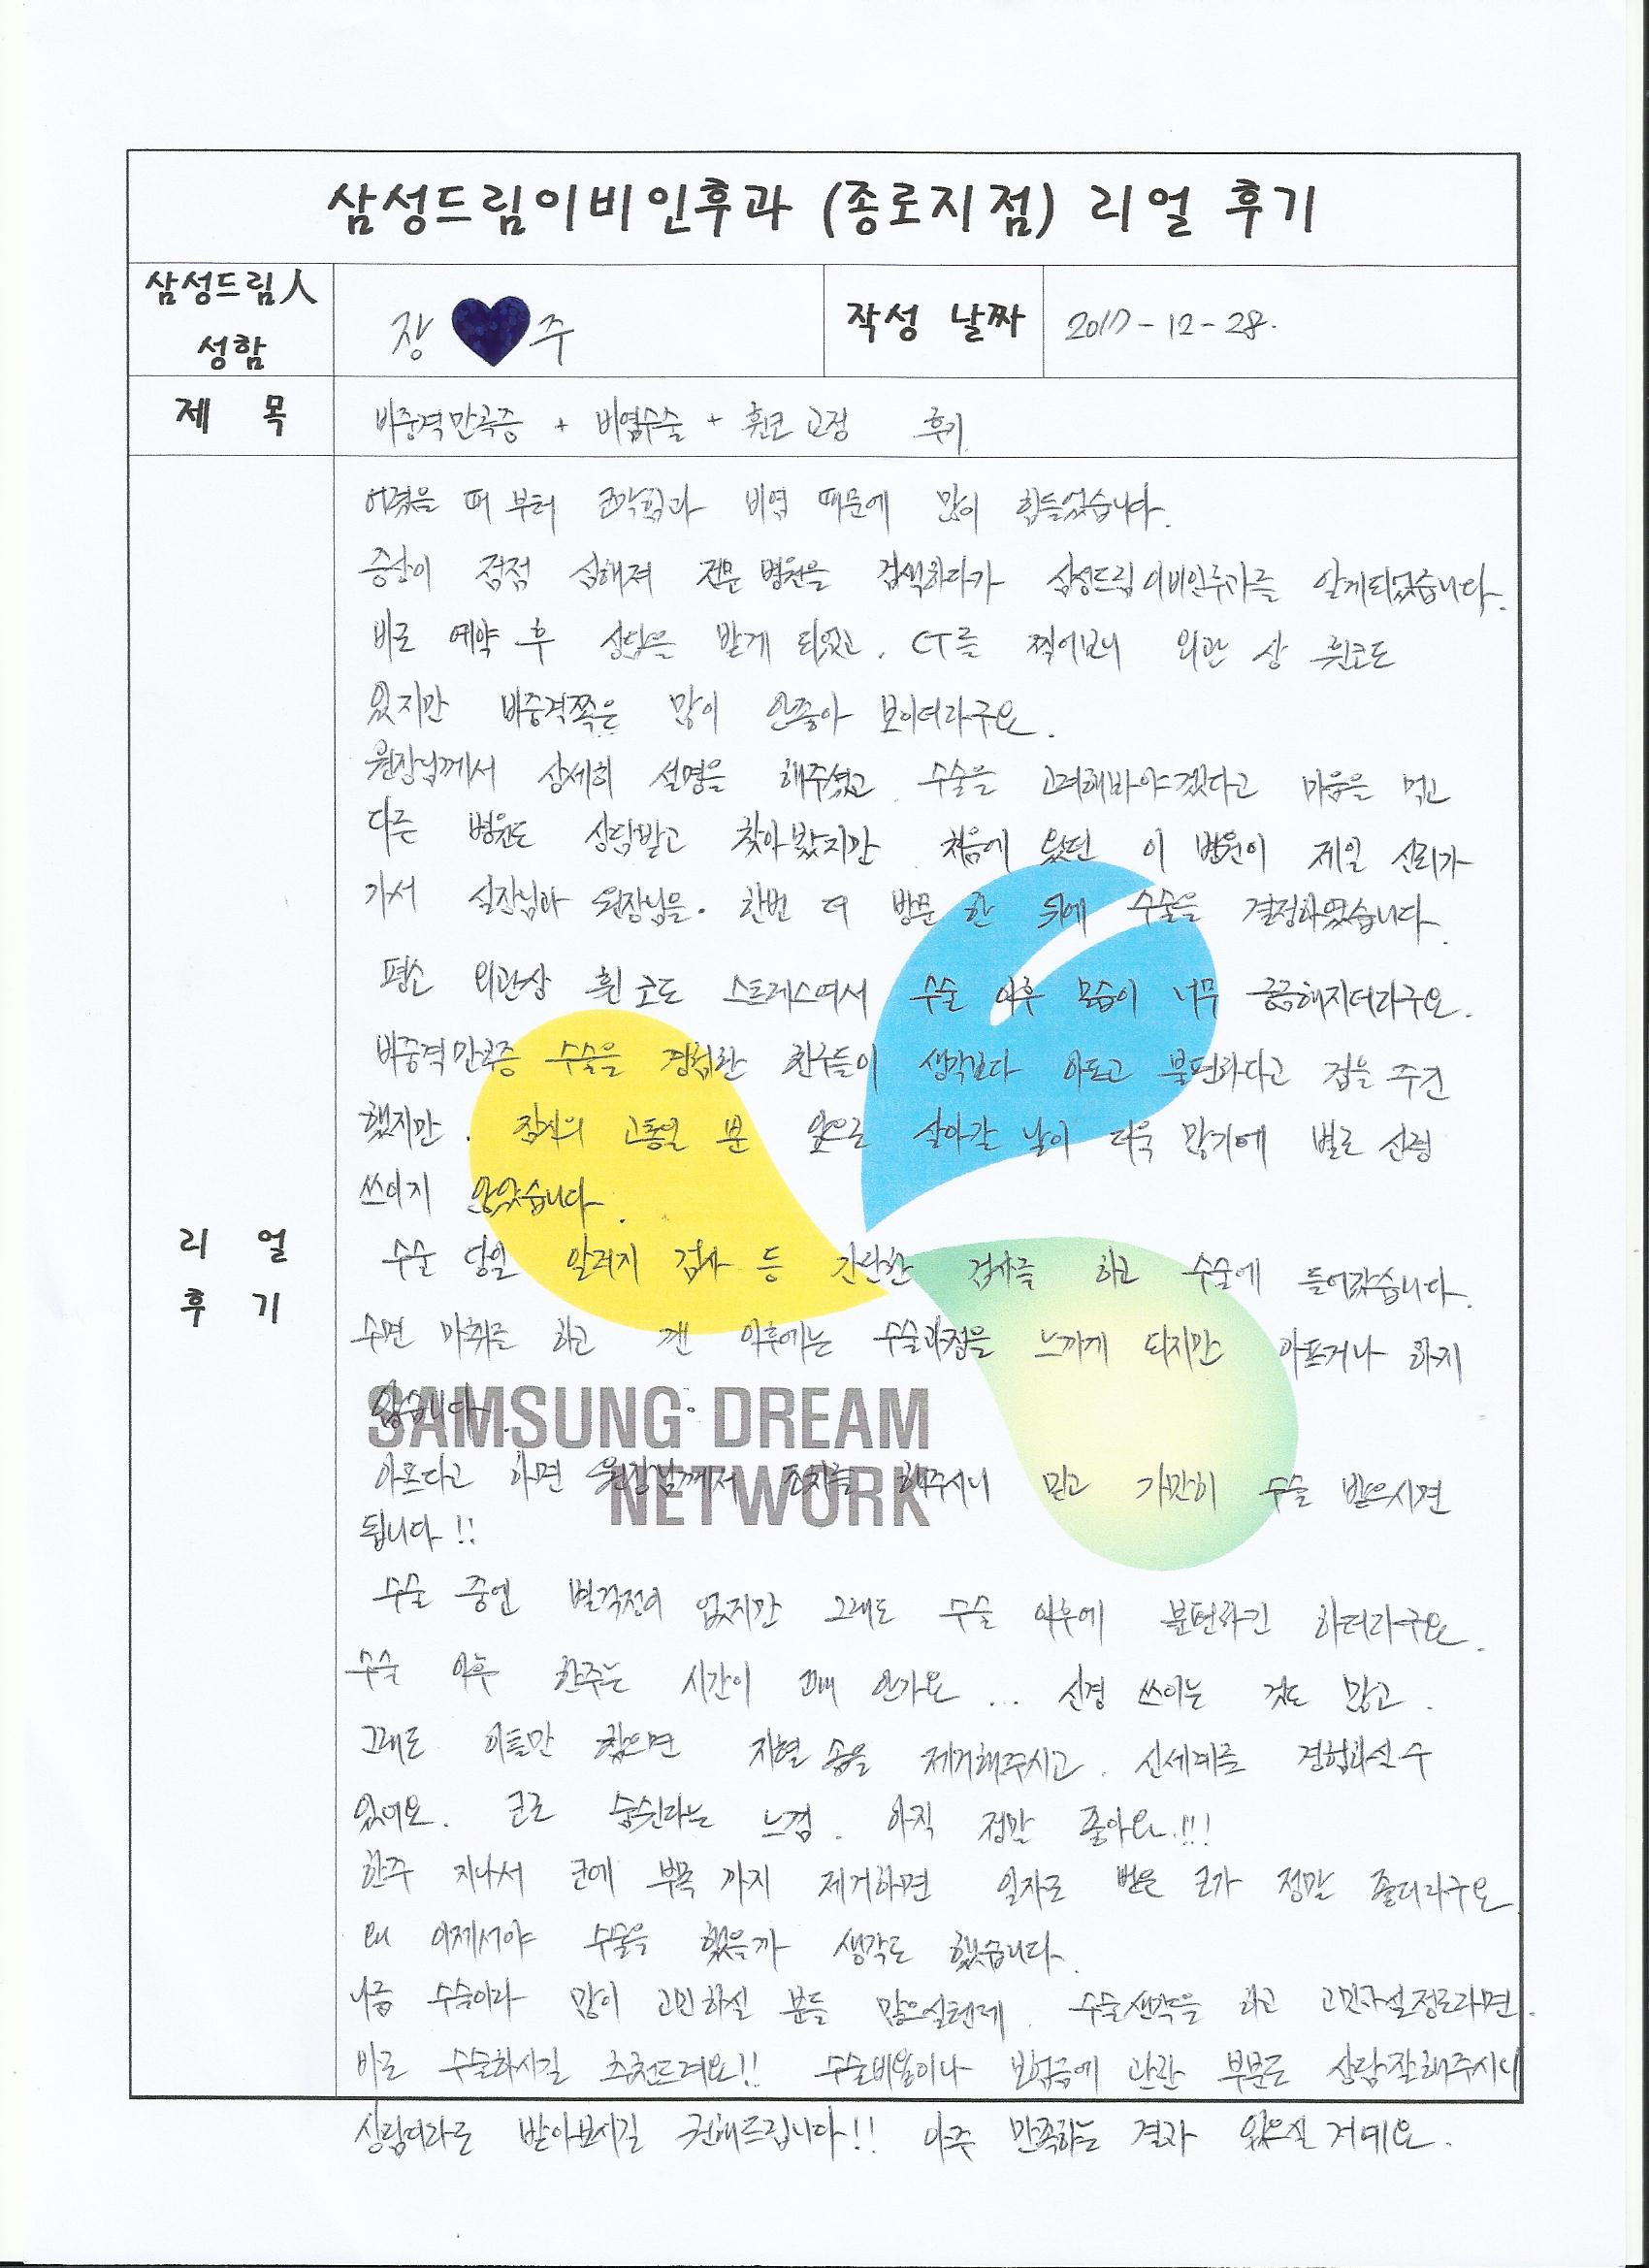 삼성드림이비인후과 (종로지점) 리얼 후기
삼성드림人 성함
장 주
작성 날짜
2017-12-28.
제 목
비중격만곡증 + 비염수술 + 휜코 교정 후기
리 얼 후 기
어렸을 때 부터 코막힘과 비염 때문에 많이 힘들었습니다.
증상이 점점 심해져 전문 병원을 검색하다가 삼성드림이비인후과를 알게되었습니다.
바로 예약 후 상담을 받게 되었고, CT를 찍어보니 외관 상 휜코도
있지만 비중격쪽은 많이 안좋아 보이더라구요.
원장님께서 상세히 설명을 해주셨고, 수술을 고려해봐야겠다고 마음을 먹고
다른 병원도 상담받고 찾아봤지만 처음에 왔던 이 병원이 제일 신뢰가
가서 실장님과 원장님을. 한번 더 방문 한 뒤에 수술을 결정하였습니다.
평소 외관상 휜 코도 스트레스여서 수술 이후 모습이 너무 궁금해지더라구요.
비중격만곡증 수술을 경험한 친구들이 생각보다 아프고 불편하다고 겁을 주긴
했지만, 잠시의 고통일 뿐 앞으로 살아갈 날이 더욱 많기에 별로 신경
쓰이지 않았습니다.
수술 당일 알러지 검사 등 간단한 검사를 하고 수술에 들어갔습니다.
수면 마취를 하고 깬 이후에는 수술과정을 느끼게 되지만 아프거나 하지
않습니다.
아프다고 하면 원장님께서 조치를 해주시니 믿고 가만히 수술 받으시면
됩니다!!
수술 중엔 별걱정이 없지만 그래도 수술 이후에 불편하긴 하더라구요.
수술 이후 한주는 시간이 꽤 안가요... 신경 쓰이는 것도 많고.
그래도 이틀만 참으면 지혈 솜을 제거해주시고, 신세계를 경험하실 수
있어요. 코로 숨쉰다는 느낌. 아직 정말 좋아요!!!
한주 지나서 코에 부목 까지 제거하면 일자로 뻗은 코가 정말 좋더라구요
왜 이제서야 수술을 했을까 생각도 했습니다.
나름 수술이라 많이 고민하실 분들 많으실텐데, 수술생각을 하고 고민하실정도라면,
바로 수술하시길 추천드려요!! 수술비용이나 보험금에 관한 부분도 상담잘해주시니
상담이라도 받아보시길 권해드립니다!! 아주 만족하는 결과 있으실 거예요.
SAMSUNG DREAM
NETWORK